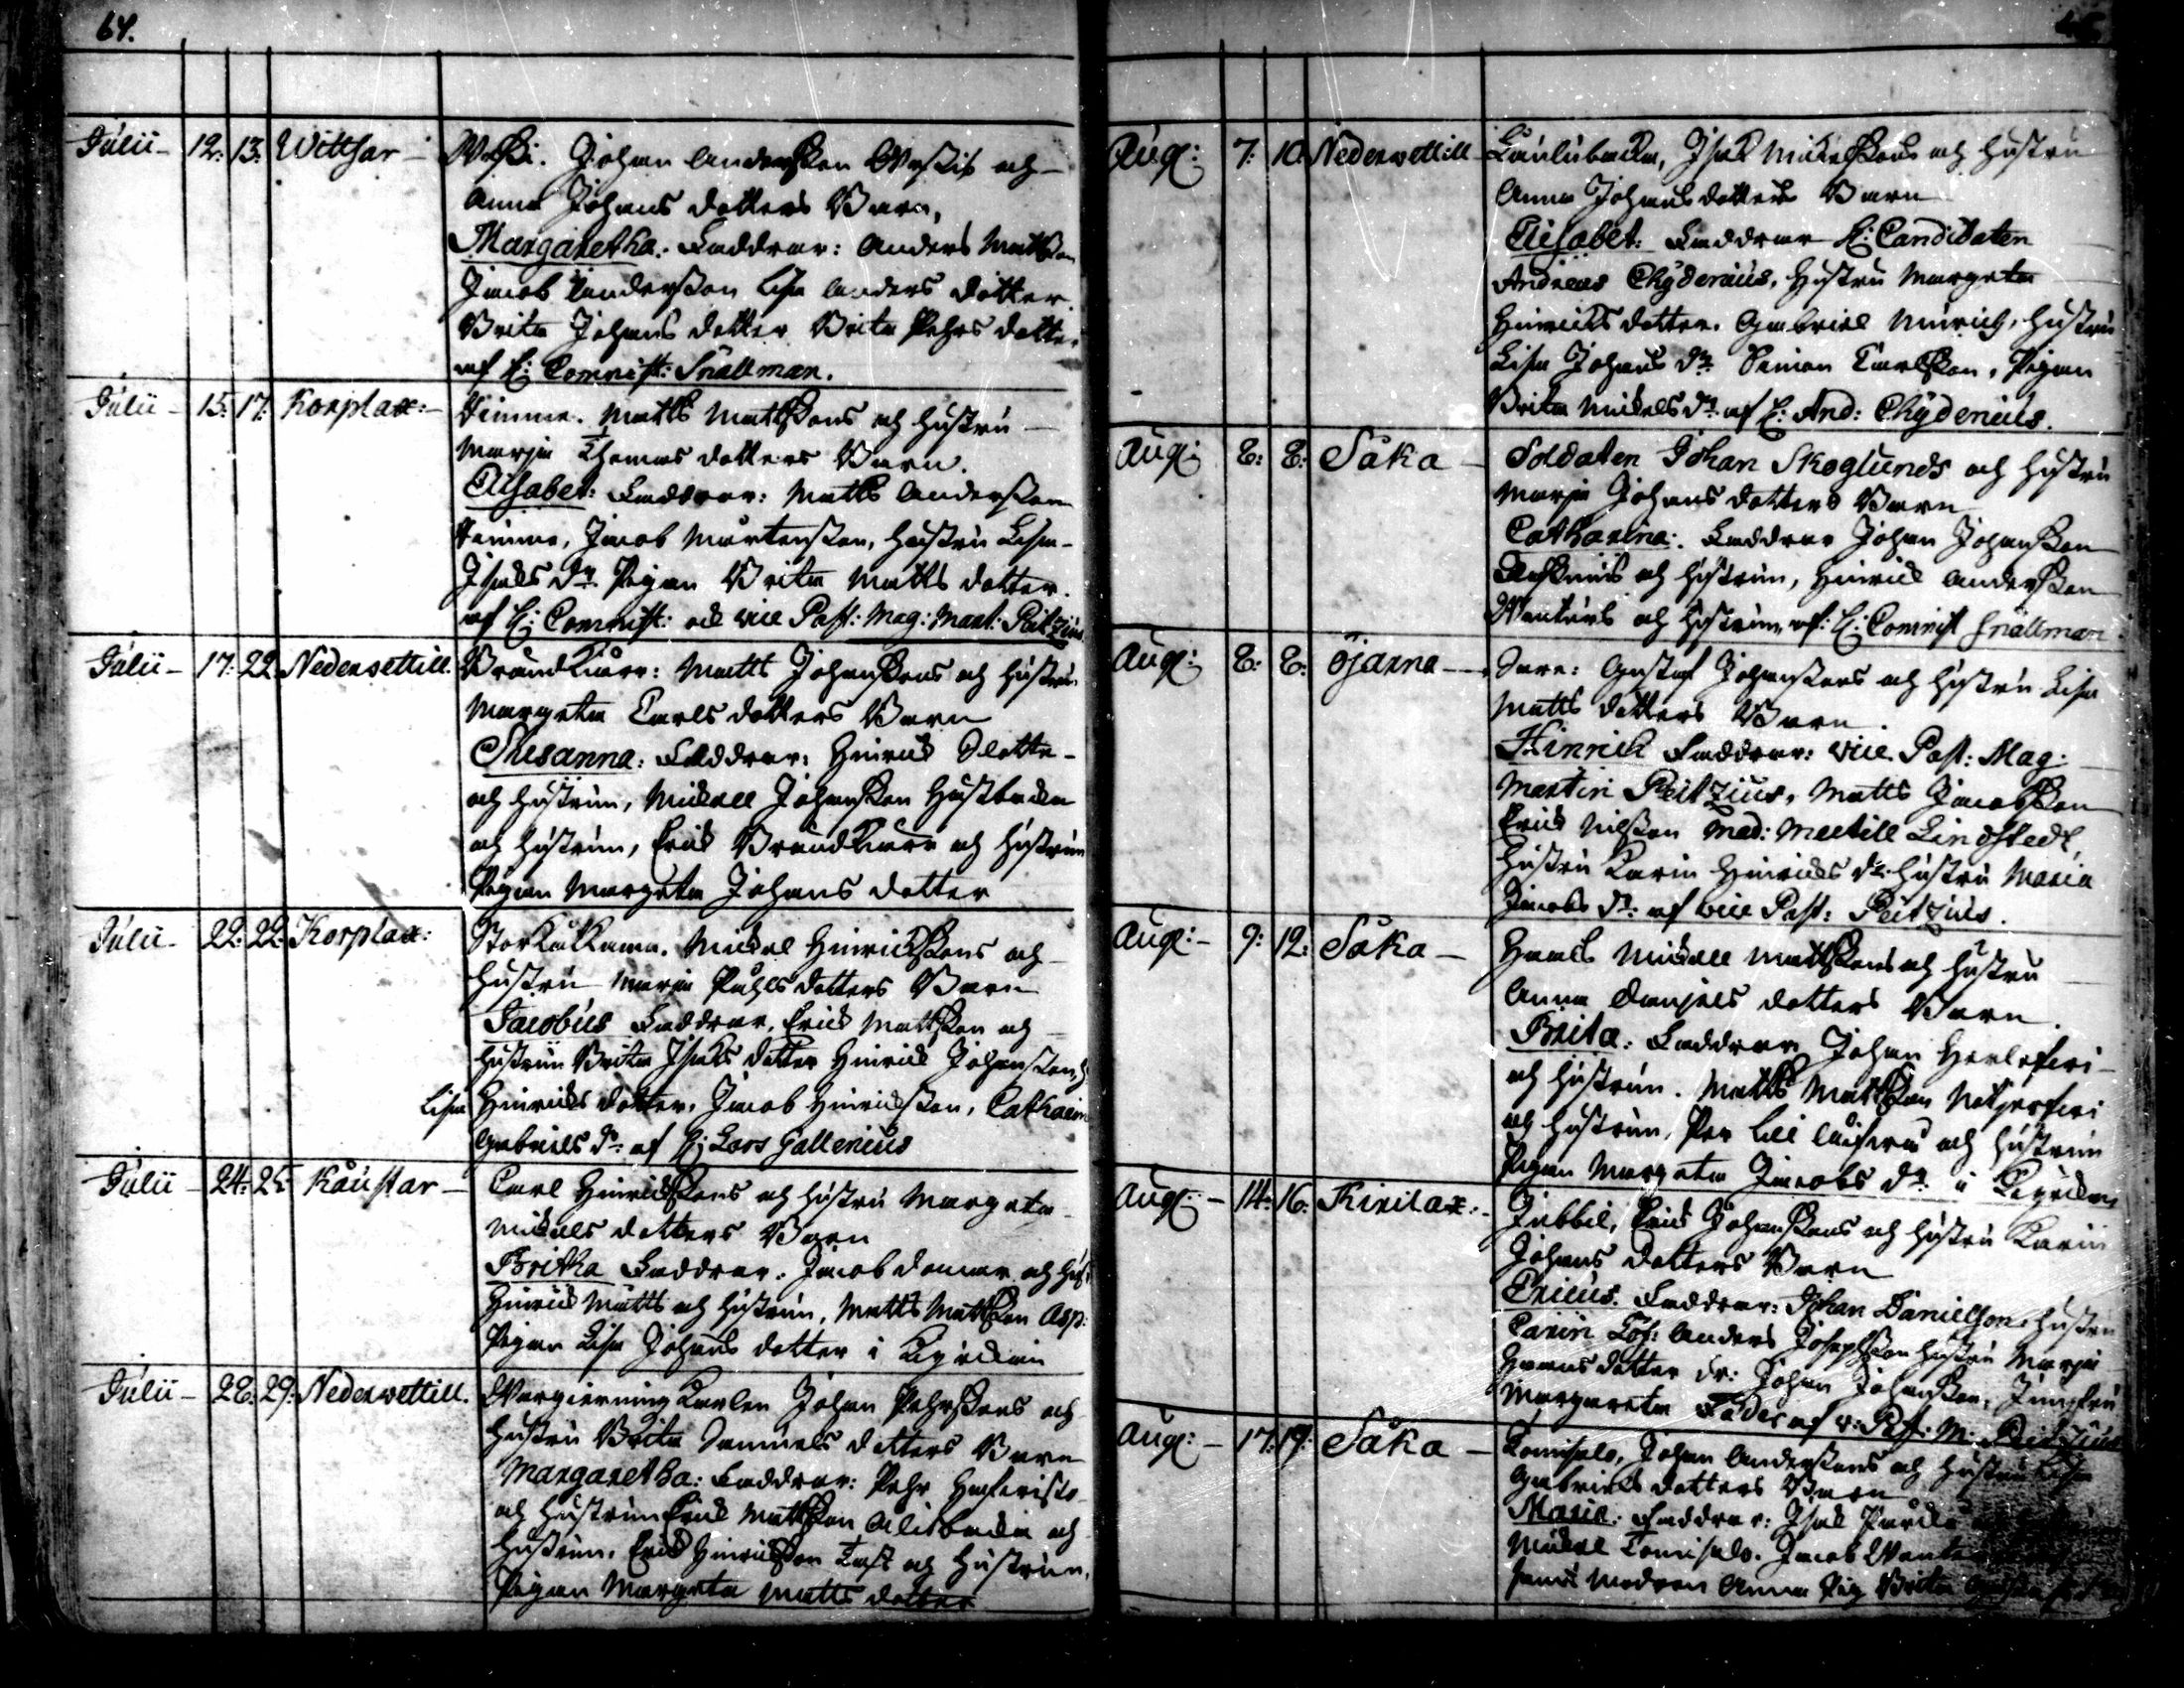 64.
Julii - 12: 13: Wittsar - Wäski. Johan Andersson Wäskis och
Anna Johans dotters Barn,
Margaretha. Faddrar: Anders Mattsson
Jacob Andersson Lisa Anders dotter
Brita Johans dotter Brita Pehrs dotter
af H: Comnist: Snällman.
Julii - 15: 17: Korplax: - Timme. Matts Mattssons och hustru
Marja Thomas dotters Barn.
Elisabet: Faddrar: Matts Andersson
Timme, Jacob Mårtensson, hustru Lisa
Isaks dr. Pigan Brita Matts dotter.
af H: Comnist: och vice Past: Mag: Mart: Peitzius
Julii - 17: 22 Nedervettill. Brandkärr: Matts Johanssons och hustru
Margeta Carls dotters Barn
Susanna: Faddrar: Hinrick Slotte
och hustrun, Mickell Johansson Hästbacka
och hustrun, Erick Brandkärr och hustrun
Pigan Margeta Johans dotter
Julii - 22: 22: Korplax: Storkåkkama. Mickel Hinrickssons och
hustru Marja Påhls dotters Barn
Jacobus Faddrar, Erick Mattsson och
hustrun Brita Isaks dotter Hinrick Johansson, h
Lisa Hinricks dotter. Jacob Hinricksson, Catharin
Gabriels dr: af H: Lars Gallenius
Julii - 24: 25: Kaustar - Carl Hinrickssons och hustru Margeta
Mickels dotters Barn
Britha Faddrar: Jacob och hust
Hinrick Matts och hustrun, Matts Mattsson Asp:
Pigan Lisa Johans dotter i Kyrckan
Julii - 28: 29: Nedervettill. Johan Pehrssons och
hustru Brita Samuels dotters Barn
Margaretha: Faddrar: Pehr
och hustrun Erick Mattsson och
hustrun. Erick Hinricksson Tast och hustrun,
Pigan Margeta Matts dotter
Aug: 7: 10: Nedervettill Laulubacka, Isak Mickelssons och hustru
Anna Johans dotters Barn
Elisabet: Faddrar H: Candidaten
Andreas Chydenius, hustru Margeta
Hinricks dotter. Gabriel hustru
Lisa Johans dr. Simon Carlsson, Pigan
Brita Mickels dr. af H: And: Chydenius.
Aug: 8: 8: Såka - Soldaten Johan Skoglunds och hustru
Marja Johans dotters Barn
Catharina: Faddrar Johan Johansson
och hustrun, Hinrick Andersson
och hustrun, af: H: Comnist Snällman
Aug: 8: 8: Öjarna - Sare: Gustaf Johanssons och hustru Lisa
Matts dotters Barn.
Hinrich Faddrar: vice Past: Mag:
Martin Peitzius, Matts Jacobsson
Erick Nilsson Mad: Meetill Lindstedt,
hustru Karin Hinricks dr. hustru Maria
Jacobs dr: af vice Past: Peitzius.
Aug: - 9: 12: Såka - Mickell Mattssons och hustru
Anna Danjels dotters Barn.
Brita: Faddrar Johan
och hustrun. Matts Mattsson
och hustrun, Per Lill och hustrun
Pigan Margeta Jacobs dr: i Kyrckan
Aug: - 14: 16: Kirilax: - Jubbil, Erick Johanssons och hustru Karin
Johans dotters Barn
Ericus. Faddrar: Johan Danielsson, hustru
Carin Löf: Anders Josephsson hustru Marja
dotter Dr: Johan Johansson, Jungfru
Margareta af v: Past: M: Peitzius
Aug: - 17: 19: Såka - Tomisalo, Johan Anderssons och hustru Lisa
Gabriels dotters Barn
Maria: Faddrar: Isak
Mickel Tomisalo. Jacob
modren Anna Pig Brita